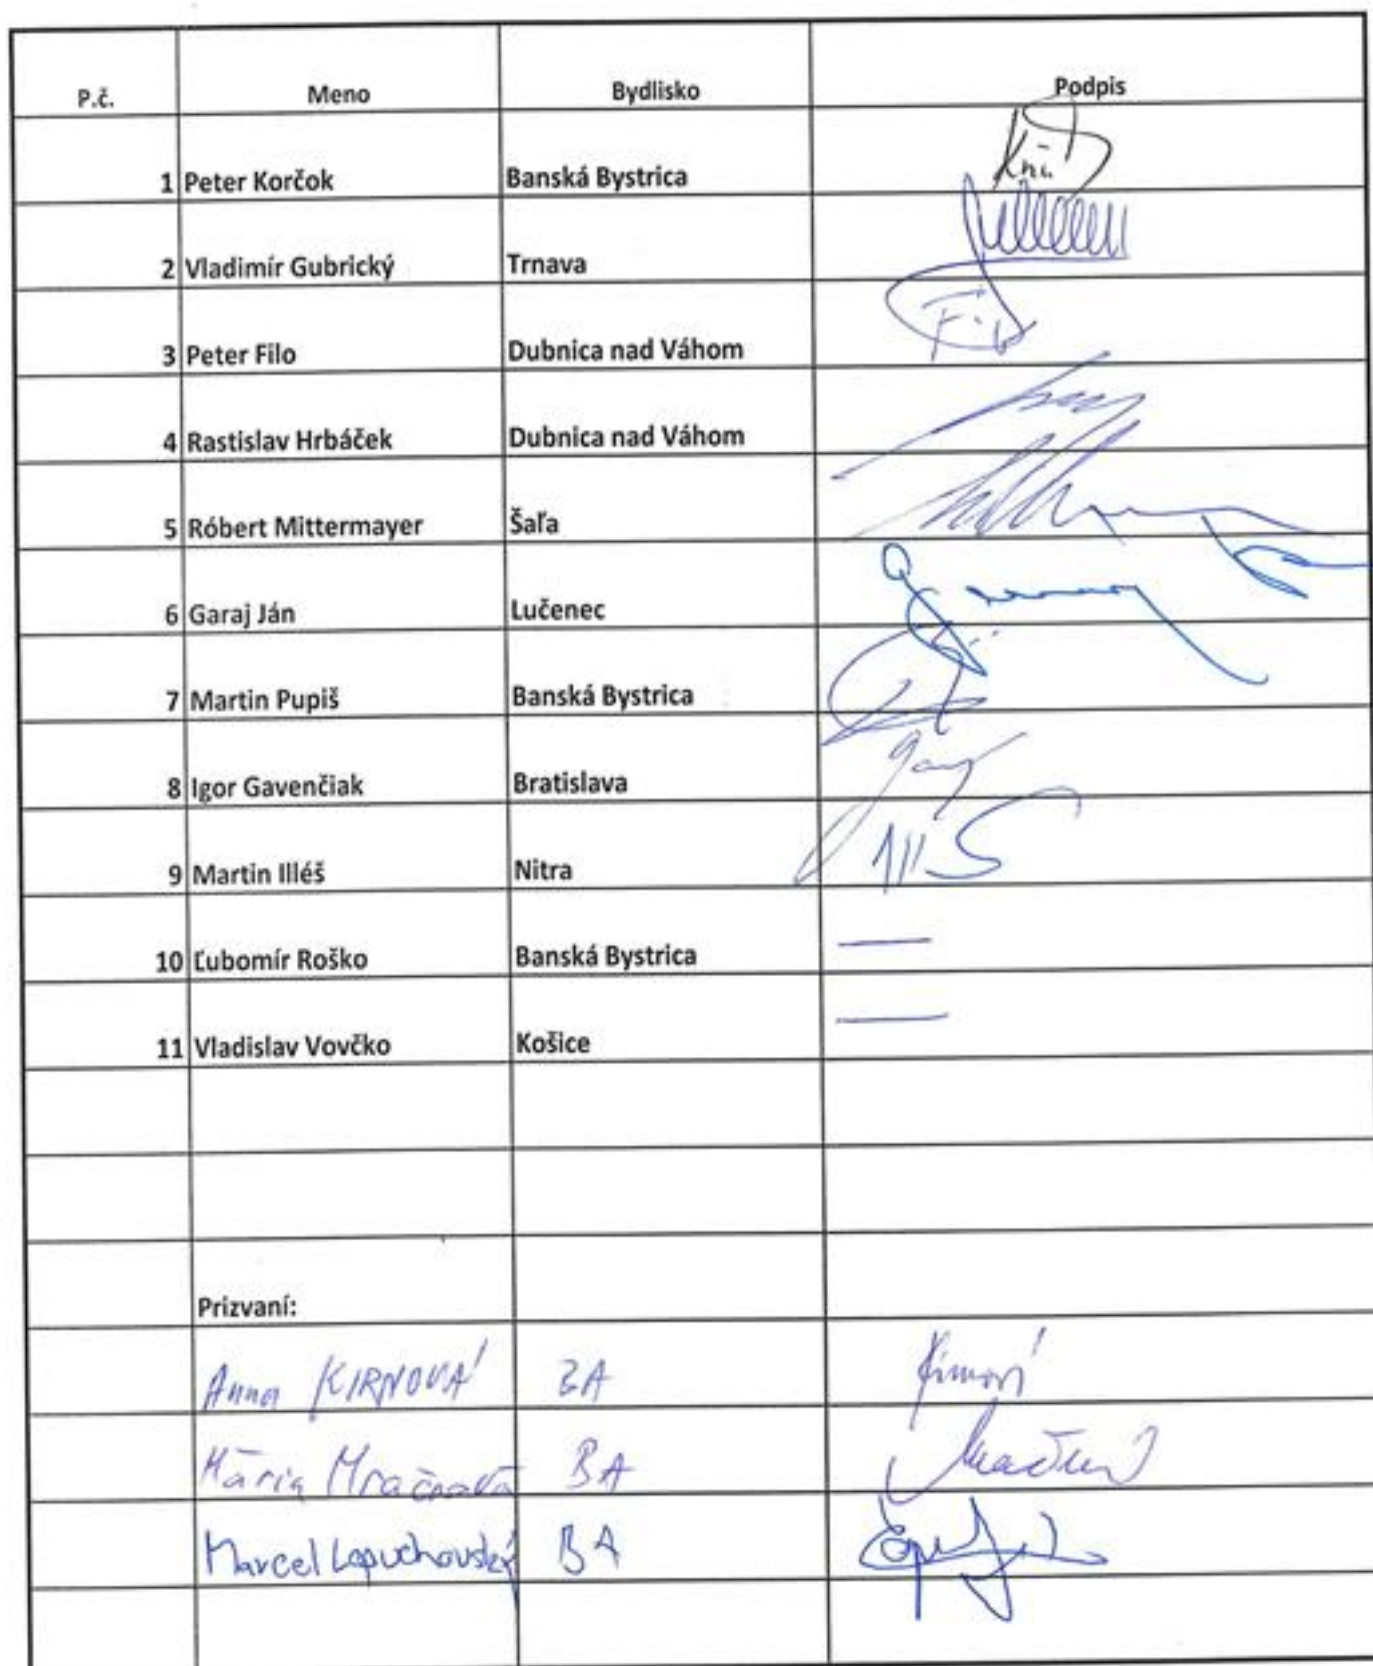 P.č. Meno Bydlisko Podpis
1 Peter Korčok Banská Bystrica
2 Vladimír Gubrický Trnava
3 Peter Filo Dubnica nad Váhom
4 Rastislav Hrbáček Dubnica nad Váhom
5 Róbert Mittermayer Šaľa
6 Garaj Ján Lučenec
7 Martin Pupiš Banská Bystrica
8 Igor Gavenčiak Bratislava
9 Martin Illéš Nitra
10 Ľubomír Roško Banská Bystrica
11 Vladislav Vovčko Košice
Prizvaní:
Anna KIRNOVÁ BA
Mária Mračnová BA
Marcel Lopuchovský BA